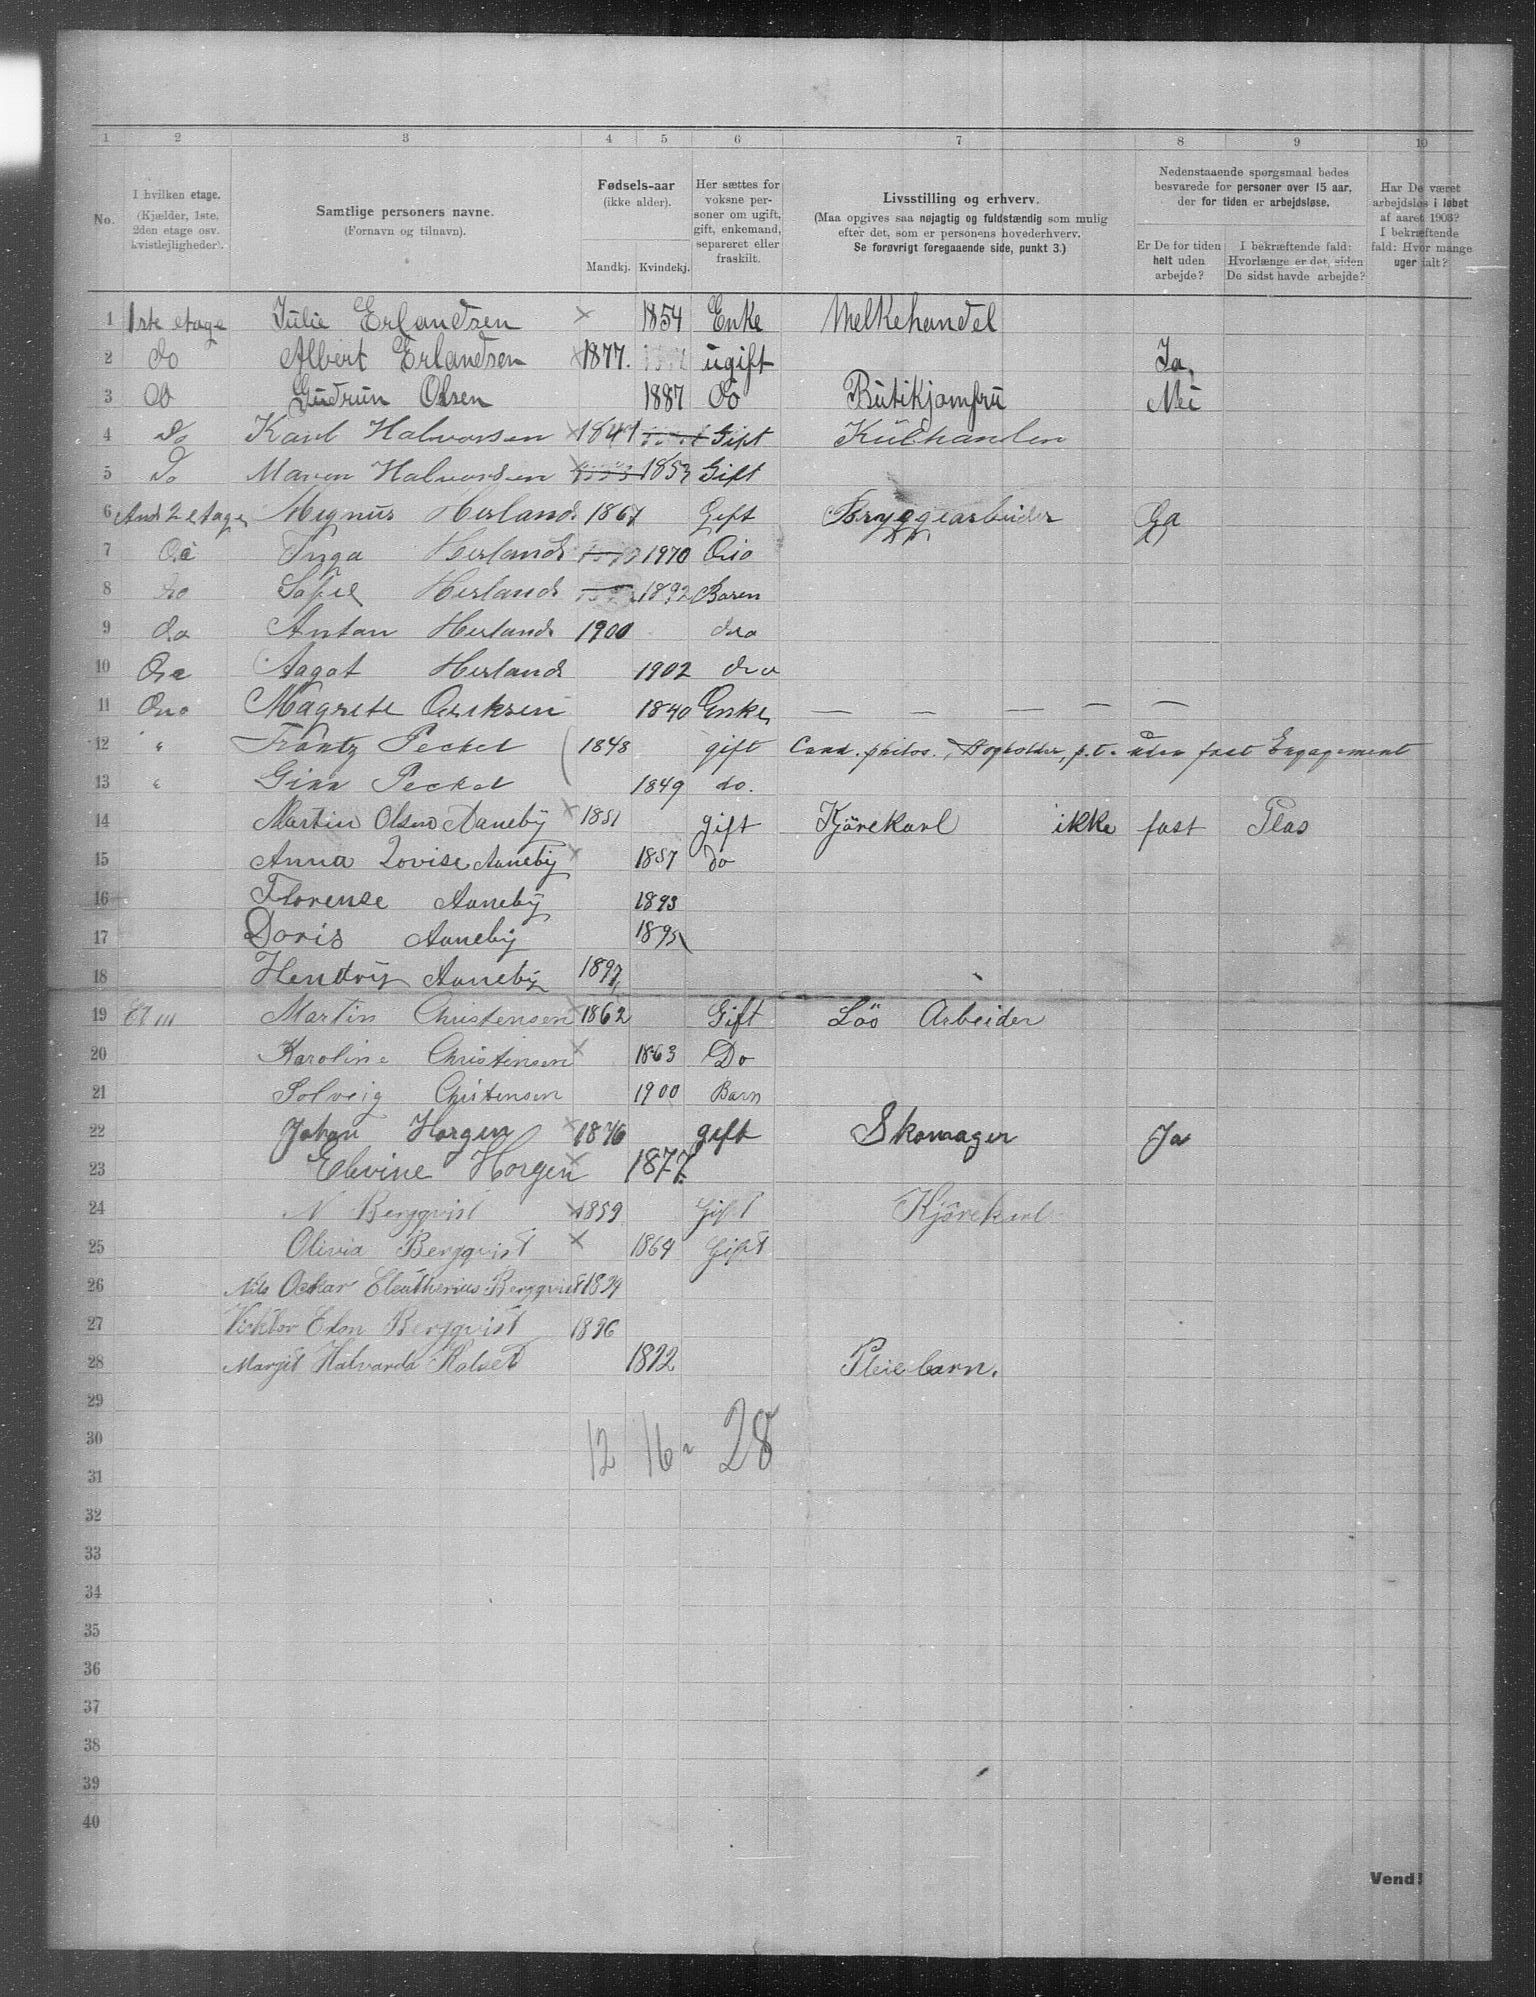 1 2 3 4 5 6 7 8 9 10
No.
I hvilken etage.
(Kjælder, 1ste,
2den etage osv.
kvistlejligheder).
Samtlige personers navne.
(Fornavn og tilnavn).
Fødsels-aar
(ikke alder).
Mandkj. Kvindekj.
Her sættes for
voksne per-
soner om ugift,
gift, enkemand,
separeret eller
fraskilt.
Livsstilling og erhverv.
(Maa opgives saa nøjagtig og fuldstændig som mulig
efter det, som er personens hovederhverv.
Se forøvrigt foregaaende side, punkt 3.)
Nedenstaaende spørgsmaal bedes
besvarede for personer over 15 aar,
der for tiden er arbejdsløse.
Er De for tiden
helt uden
arbejde?
I bekræftende fald:
Hvorlænge er det, siden
De sidst havde arbejde?
Har De været
arbejdsløs i løbet
af aaret 1903?
I bekræftende
fald: Hvor mange
uger ialt?
1 1ste etage Julie Erlandsen × 1854 Enke Melkehandel
2 do Albert Erlandsen × 1877. ugift Ja
3 do Gudrun Olsen 1887 do Butikjomfru Nei
4 Do Karl Halvorsen × 1841 Gift Kulhandler
5 Do Maren Halvorsen × 1853 Gift
6 And 2 etage Magnus Herland 1867 Gift Bryggearbeider Ja
7 Inga Herland 1970
8 do Sofie Herland 1892 Baren
9 do Antan Herland 1900 dro
10 Aagot Herland 1902 dro
11 Magrete Eriksen 1840 Enke — — — — —
12 " Frantz Peckel 1848 gift Cand. philos., Bogholder, p.t. uden fast Engagement
13 " Gina Peckel 1849 do.
14 Martin Olsen Aaneby × 1851 gift Kjörekarl ikke fast Plas
15 Anna Lovise Aaneby × 1857 do
16 Florense Aaneby 1893
17 Doris Aaneby 1895
18 Hendry Aaneby 1897
19 Et III Martin Christensen × 1862 Gift Løs Arbeider
20 Karoline Christensen × 1863 Do
21 Solveig Christensen 1900 Barn
22 Johan Horgen × 1876 gift Skomager Ja
23 Elevine Horgen × 1877.
24 N Bergqvist × 1859 Gift Kjörekarl
25 Olivia Bergqvist × 1864 Gift
26 Nils Oskar Eleutherius Bergqvist 1894
27 Vicktor Edon Bergqvist 1896
28 Margit Halvarda 1892 Pleiebarn.
29
30 12 16 " 28
31
32
33
34
35
36
37
38
39
40
Vend!